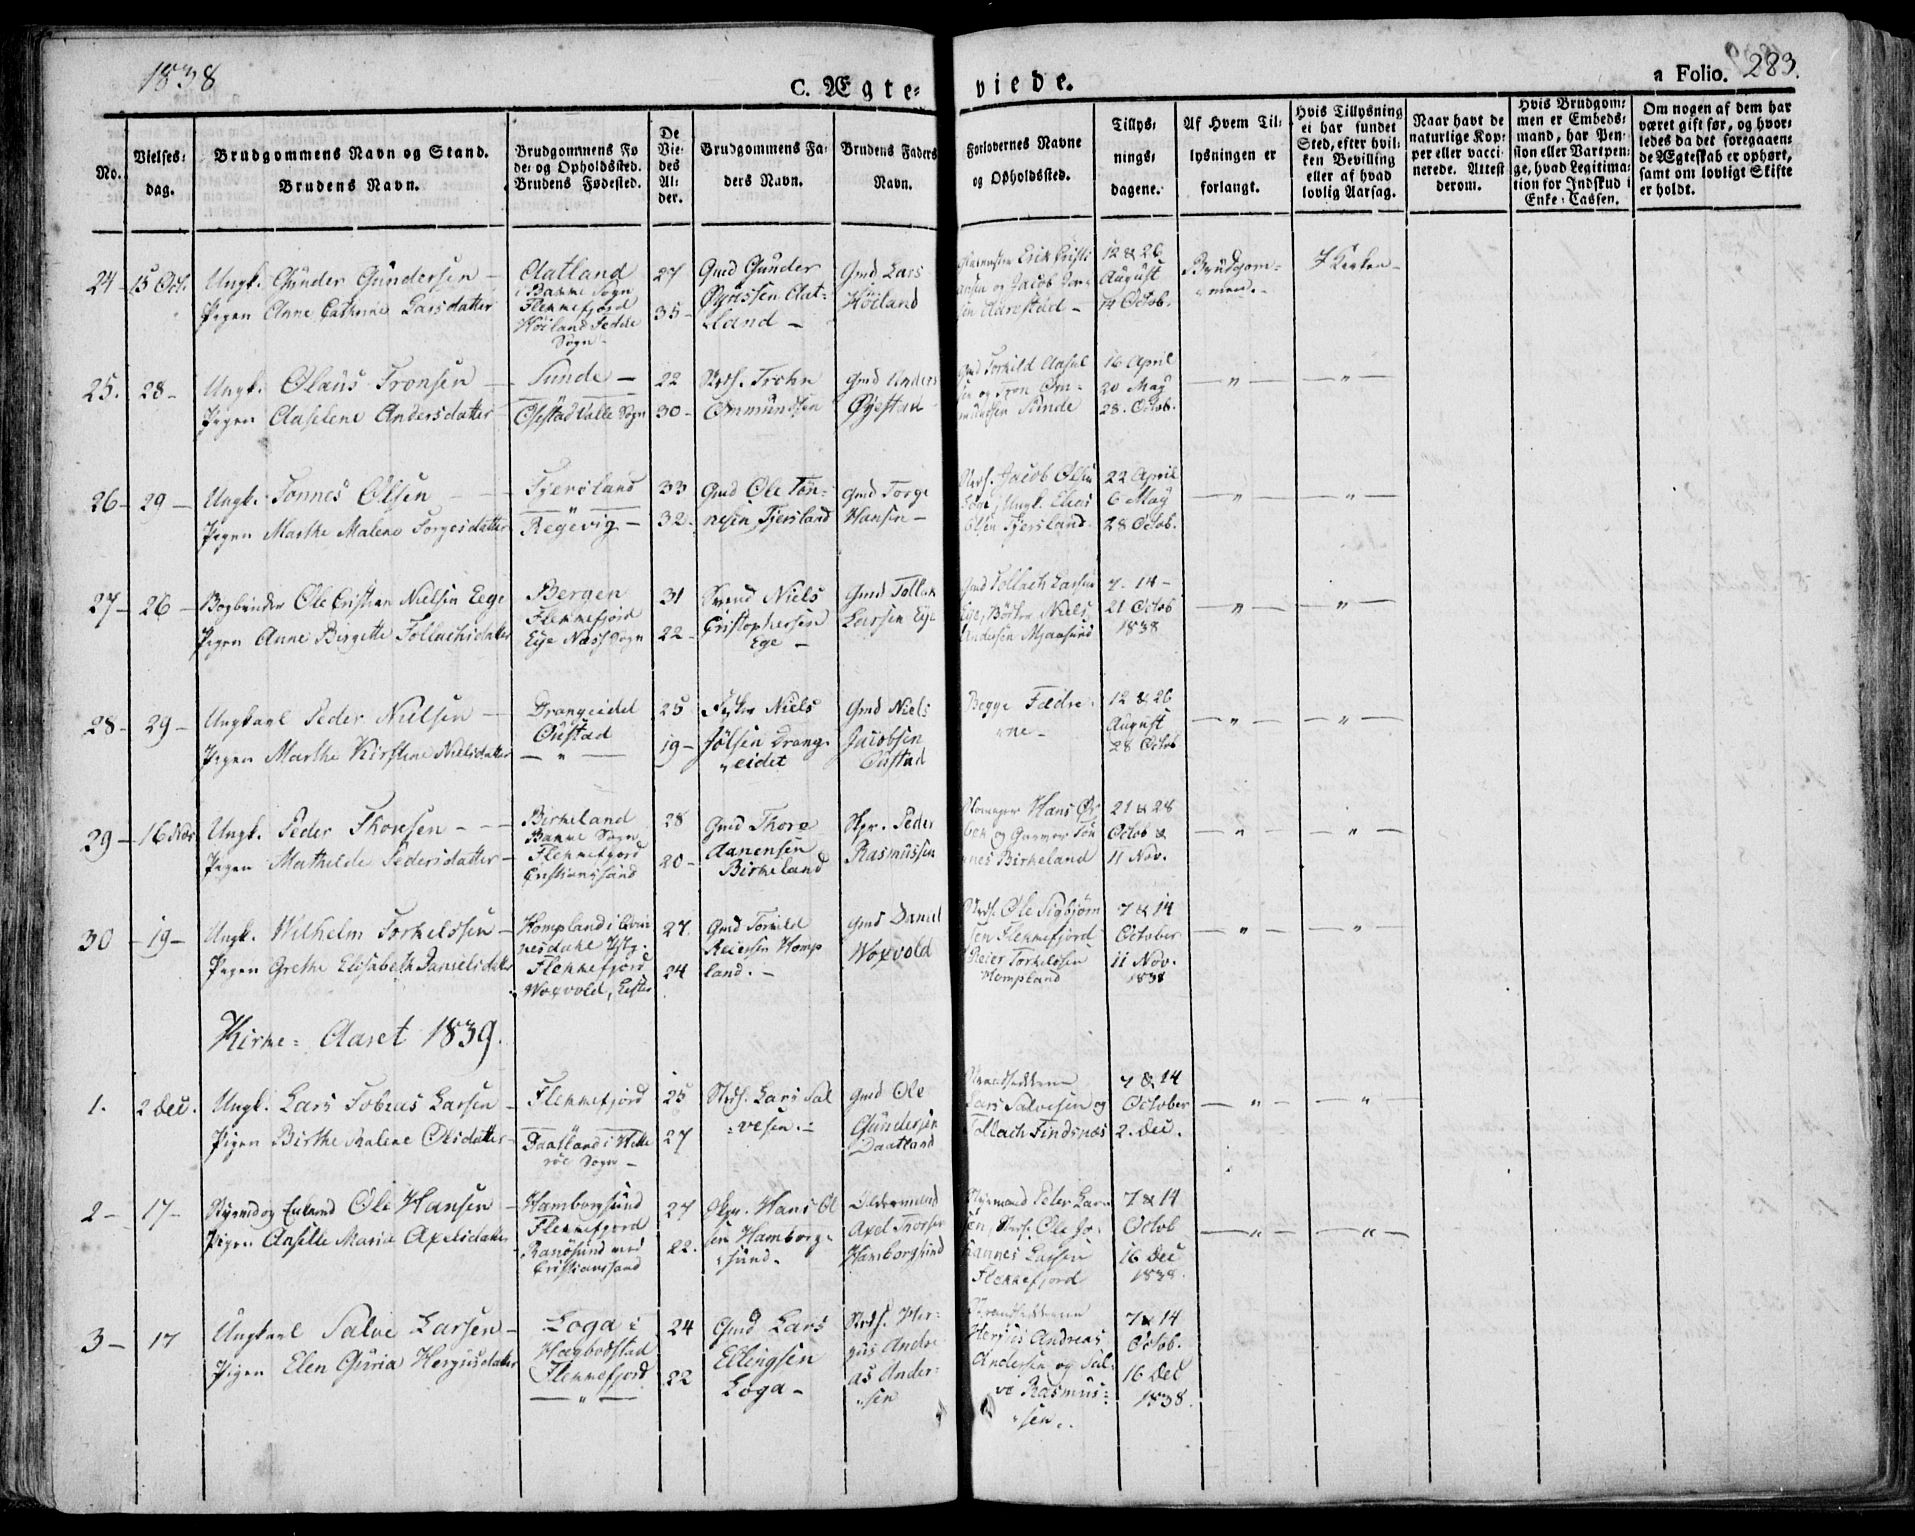 1838
C. Ægte-viede.
a Folio. 283.
No.
Vielses-
dag.
Brudgommens Navn og Stand.
Brudens Navn.
Brudgommens Fø
de- og Opholdssted.
Brudens Fødested.
De
Vie-
des
Al-
der.
Brudgommens Fa-
ders Navn.
Brudens Faders
Navn.
Forlovernes Navne
og Opholdssted.
Tillys-
nings-
dagene.
Af Hvem Til-
lysningen er
forlangt.
Hvis Tillysning
ei har fundet
Sted, efter hvil-
ken Bevilling
eller af hvad
lovlig Aarsag.
Naar havt de
naturlige Kop-
per eller vacci-
nerede. Attest
derom.
Hvis Brudgom-
men er Embeds-
mand, har Pen-
sion eller Vartpen-
ge, hvad Legitima-
tion for Indskud i
Enke-Cassen.
Om nogen af dem har
været gift før, og hvor-
ledes da det foregaaen-
de Ægteskab er ophørt,
samt om lovligt Skifte
er holdt.
24 - 15 Oct. Ungk. Gunder Gundersen -
Pigen Anne Cathrine Larsdatter
Aatland
i Bakke Sogn
Flekkefjord
Høiland Fedde
Sogn -
27
35 -
Gmd Gunder
Aat-
land -
Gmd Lars
Høiland
Erik Cristi
ansen og Jacob Jen-
sen Aarestad -
12 & 26
August
14 Octob.
Brudgom-
men -
I Kirken -
25. 28 - Ungk. Olaus Tronsen -
Pigen Aaselene Andersdatter
Sunde -
Øiestad Valle Sogn
22
30 -
Strds. Trohn
Ommundsen
Gmd Anders
Øyestad
Gmd Torkild Aasul
sen og Tron Om-
mundsen Sunde
16 April
20 May
28. Octob.
- " - - " -
26 - 29 - Ungk. Tønnes Olsen - -
Pigen Marthe Malene Torgersdatter
Fjersland
- " -
Regevig -
33
32.
Gmd Ole Tøn-
nesen Fjersland
Gmd Torge
Hansen -
Strds. Jacob Olsen
Ungk. Elias
Olsen Fjersland
22 April
6 May
28 Octob.
- " - - " -
27 - 26 - Bogbinder Ole Cristian Nielsen Eege
Pigen Anne Birgitte Tollachsdatter
Bergen
Flekkefjord
Eye Næss Sogn
31
22 -
Svend Niels
Cristophersen
Ege -
Gmd Tollak
Larsen Eye
Gmd Tollach Larsen
Eye, Bødker Niels
Andersen Mjaasund
7 - 14 -
21 Octob
1838
- " - - " -
28 - 29 - Ungkarl Peder Nielsen -
Pigen Marthe Kirstine Nielsdatter
Drangeidet
Oustad
- " -
25
19 -
Niels
Jølsen Drang-
eidet
Gmd Niels
Jacobsen
Oustad
Begge Fædre-
ne -
12 & 26
August
28 Octob
- " - - " -
29 - 16 Nov Ungk. Peder Thorsen - -
Pigen Mathilde Pedersdatter -
Birkeland
Bakke Sogn
Flekkefjord
Cristianssand
28
20 -
Gmd Thore
Aanensen
Birkeland
Skpr. Peder
Rasmussen
Hans Ør
bek og Garver Tøn
nes Birkeland
21 & 28
Octob &
11 Nov.
- " - - " -
30 - 19 - Ungk. Wilhelm Torkelssen -
Pigen Grethe Elisabeth Danielsdatter
Kompland i Qvin
nesdahl
Flekkefjord
Woxvold, Lister
27.
24
Gmd Torkild
Reiersen Komp
land. -
Gmd Daniel
Woxvold
Strds. Ole Sigbjørn
sen Flekkefjord
Reier Torkelssen
Kompland
7 & 14
October
11 Nov.
1838
- " - - " -
Kirke - Aaret 1839.
1. 2 Dec. Ungk. Lars Tobias Larsen -
Pigen Birthe Malene Olsdatter -
Flekkefjord
Daatland i Hitte
røe Sogn -
25
27
Strds. Lars Sal
vesen. -
Gmd Ole
Gundersen
Daatland
Strandsidderne
Lars Salvesen og
Tollach Findsnæs
7 & 14
October
2. Dec.
- " - - " -
2 - 17 - Styrmd og Enkemd Ole Hansen -
Pigen Aaselle Maria Axelsdatter
Hamborgsund
Flekkefjord
Randøsund ved
Cristianssand
27
22.
Skpr. Hans Ol
sen Hamborg-
sund.
Oldermand
Axel Torsen
Hamborgsund
Styrmand Peter Lar-
sen, Strds. Ole Jo-
hannes Larsen
Flekkefjord
7 & 14
Octob
16 Dec
1838.
- " - - " -
3 - 17 Ungkarl Salve Larsen -
Pigen Elen Guria Hergusdatter
Loga i
Hægbodstad
Flekkefjord
- " -
24
22
Gmd Lars
Ellingsen
Loga -
Strds. Her-
gus Andre
as Ander-
sen
Strandsidderne
Hergus Andreas
Andersen og Sal-
ve Rasmus-
sen.
7 & 14
Octob.
16 Dec
1838.